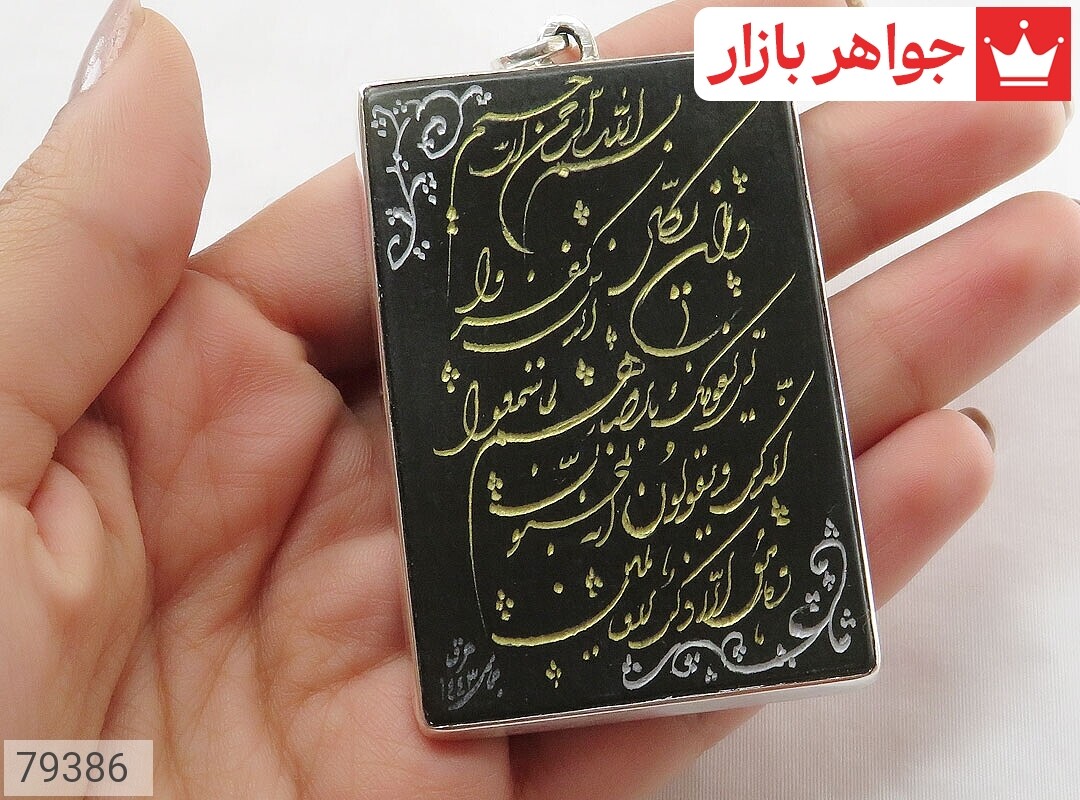 جواهر بازار
بسم الله الرحمن الرحیم
وان یکاد الذین کفروا
لیزلقونک بابصارهم لما سمعوا
الذکر ویقولون انه لمجنون
وما هو الا ذکر للعالمین
۱۴۴۳
79386